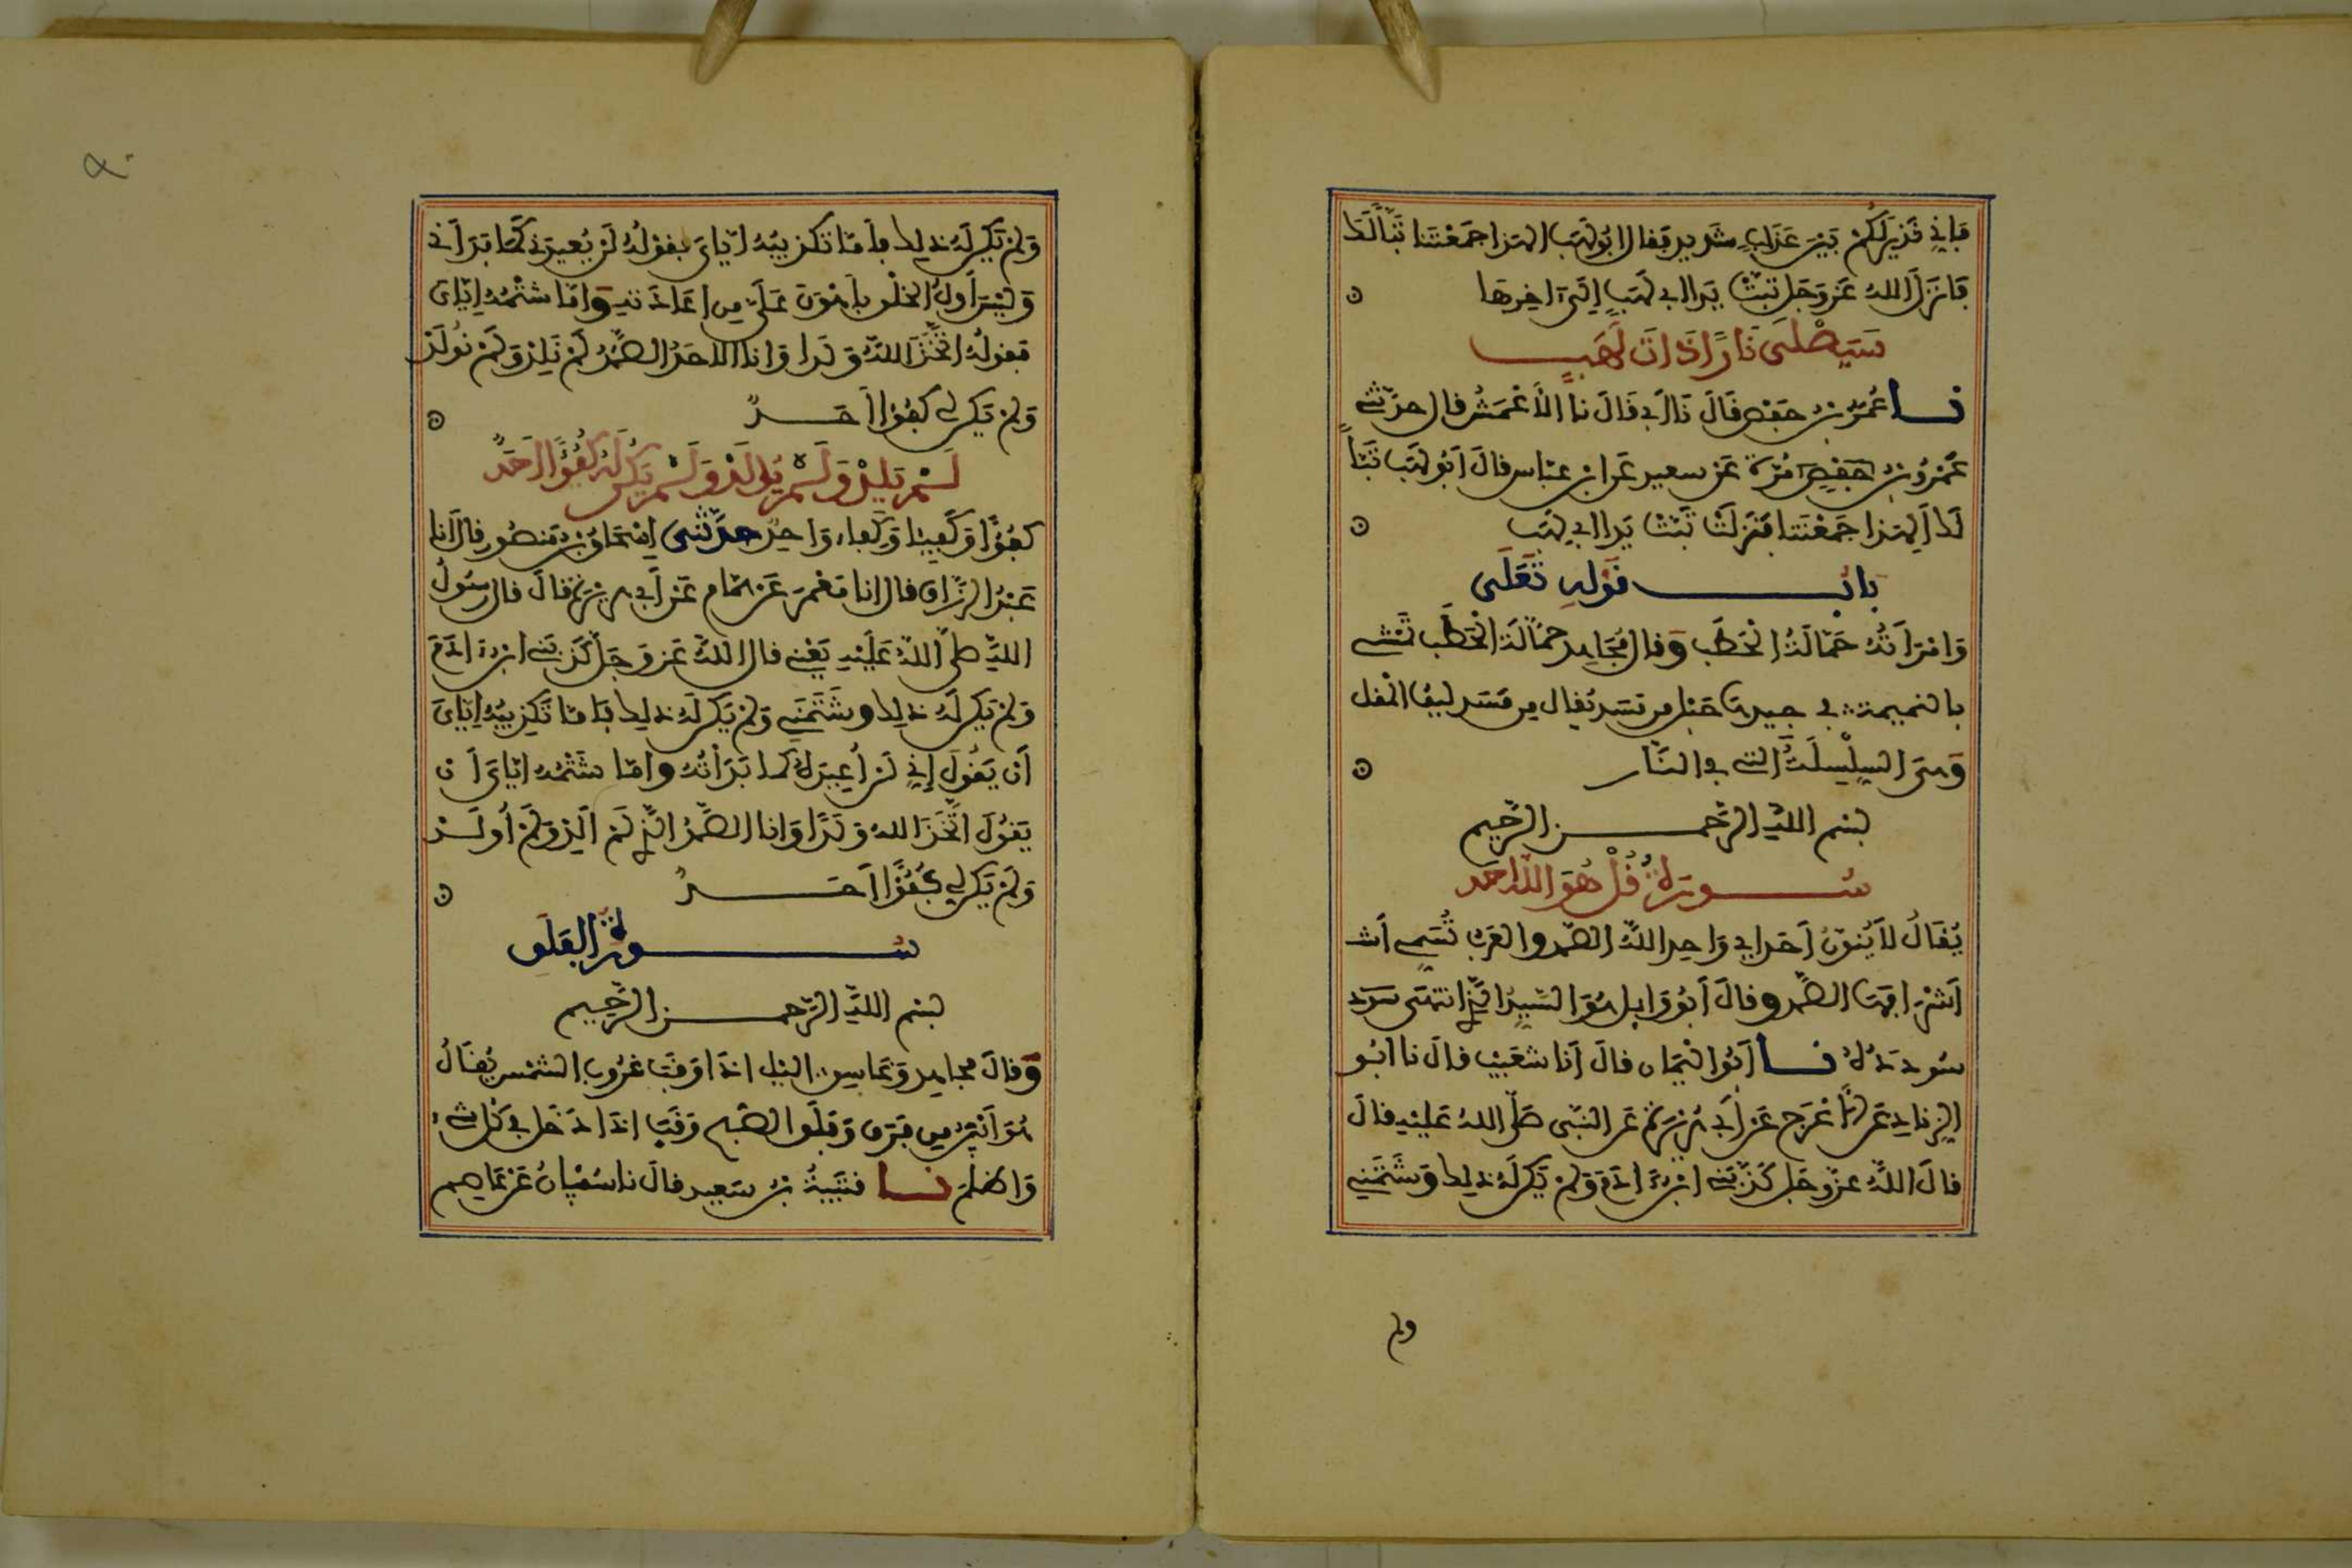 فَإِنِّي نَذِيرٌ لَكُمْ بَيْنَ عَذَابٍ شَدِيدٍ فقال ابُو لَهَبٍ الهذا جَمَعْتَنَا تَبًّا لَكَ
فَانْزَلَ اللهُ عَزَّ وَجَل تَبَّتْ يَدَا ابى لَهَبٍ إِلَى اخِرِهَا
سَيَصْلَى نَارًا ذَاتَ لَهَبٍ
نا عُمَرُ بنُ حَفْصٍ قَالَ نَا أَبِي قَالَ نا الأَعْمَشُ قال حدّثني
عَمْرُو بنُ حَفْصٍ مُرَّةَ عَن سعيدٍ عَن ابنِ عبّاسٍ قالَ أبُو لَهَب تَبًّا
لَكَ أَلِهَذا جَمَعْتَنَا فَنَزَلَتْ تَبَّتْ يَدَا ابي لهَب
بابُ قَوْلِهِ تَعَلَى
وَامْرَأَتُهُ حَمَّالَةُ الْحَطَب وَقال مُجَاهِد حمّالَة الحَطَب تَمْشى
بالنميمة فى جيدها حَبْل من مَسَد يُقال مِن مَسَد لِيفُ المُقل
وَهىَ السِلْسِلَةُ التى في النَّار
بسم اللهِ الرّحمن الرّحيم
سورَةُ قُلْ هُوَ اللهُ احَد
يُقَالُ لاَ يُنَوَّنُ أَحَد اى وَاحِد اللهُ الصّمد والعَرَب تُسَمِّى أش
أَشْرَافَهَا الصَّمد وقالَ أَبُو وَايل هُوَ السَّيِّدُ الّذِى انتهَى سَوْدَ
سُودَدُهُ نا أبُوا اليَمَان قالَ أنَا شعَيْب قالَ نا ابُو
الزِنادِ عَن الأعْرَج عَن أبي هُرَيْرَةَ عَن النّبى صَلّى اللهُ عَلَيْهِ قالَ
قالَ اللهُ عزّ وجَل كَذَّبَنِى ابْنُ ادَمَ وَلَمْ يَكُن لَهُ ذلِك وَشَتَمَنِى
ولم
وَلَمْ يَكُن لَهُ ذلِك فأمّا تكذيبُهُ ايّايَ فقوْلُهُ لَن يُعيدَني كَمَا بَدَأَنى
وَلَيْسَ أوَلُ الخلْق بأهْوَنَ عَلَىَّ مِن إعَادَتِهِ وَامّا شتْمُهُ إِيّايَ
فقولُهُ اتَّخَذَ اللهُ وَلَدا وَانا الاحَدُ الصَّمَدُ لَمْ نَلِدْ وَلَمْ نُولَدْ
وَلَمْ يَكُن لى كفُؤًا أحَدٌ
لَمْ يَلِدْ وَلَمْ يُولَدْ وَلَمْ يَكُن لَّهُ كُفُؤًا اَحَدٌ
كفُؤًا وَكَفِيئا وَكِفَاء وَاحِدٌ حدّثنى إسْحَاقُ بنُ مَنصُور قال انا
عَبْدُ الرزّاق قال انا مَعْمَر عَن همّام عَن أبي هريْرَة قالَ قال رسُولُ
اللهِ صلى اللهُ عَلَيْهِ يَعْنِى قال اللهُ عَزّ وَجَلّ كَذّبَنِى ابنُ ادَمَ
وَلَمْ يَكُن لَهُ ذلِك وشَتَمَنِى وَلَمْ يَكُن لَهُ ذلِك فَامّا تَكْذِيبُهُ إِيّايَ
أَن يَقُولَ إِنِي لَن أُعِيدَهُ كما بَدَأْتُهُ وامّا شَتْمُهُ ايّايَ أَن
يَقُولَ اتّخَذَ اللهُ وَلَدًا وَانا الصَّمَدُ الذِى لَم أَلِدْ وَلَمْ أُولَدْ
وَلَمْ يَكُن لِى كُفُؤًا أحَدٌ
سُورَةُ الفَلَقِ
بسم اللهِ الرّحمن الرّحيم
وَقالَ مجاهِد وَغَاسِق اليْل اذَا وَقَبَ غرُوب الشمْس يُقالُ
هُوَ أَبْيَنُ مِن فَرَقِ وَفَلَقِ الصّبح وَقَبَ اذَا دَخَل في كل شىء
وَاظلَمَ نا قتَيْبَةُ بنُ سَعِيدٍ قالَ نا سُفْيَانُ عَن عَاصِم